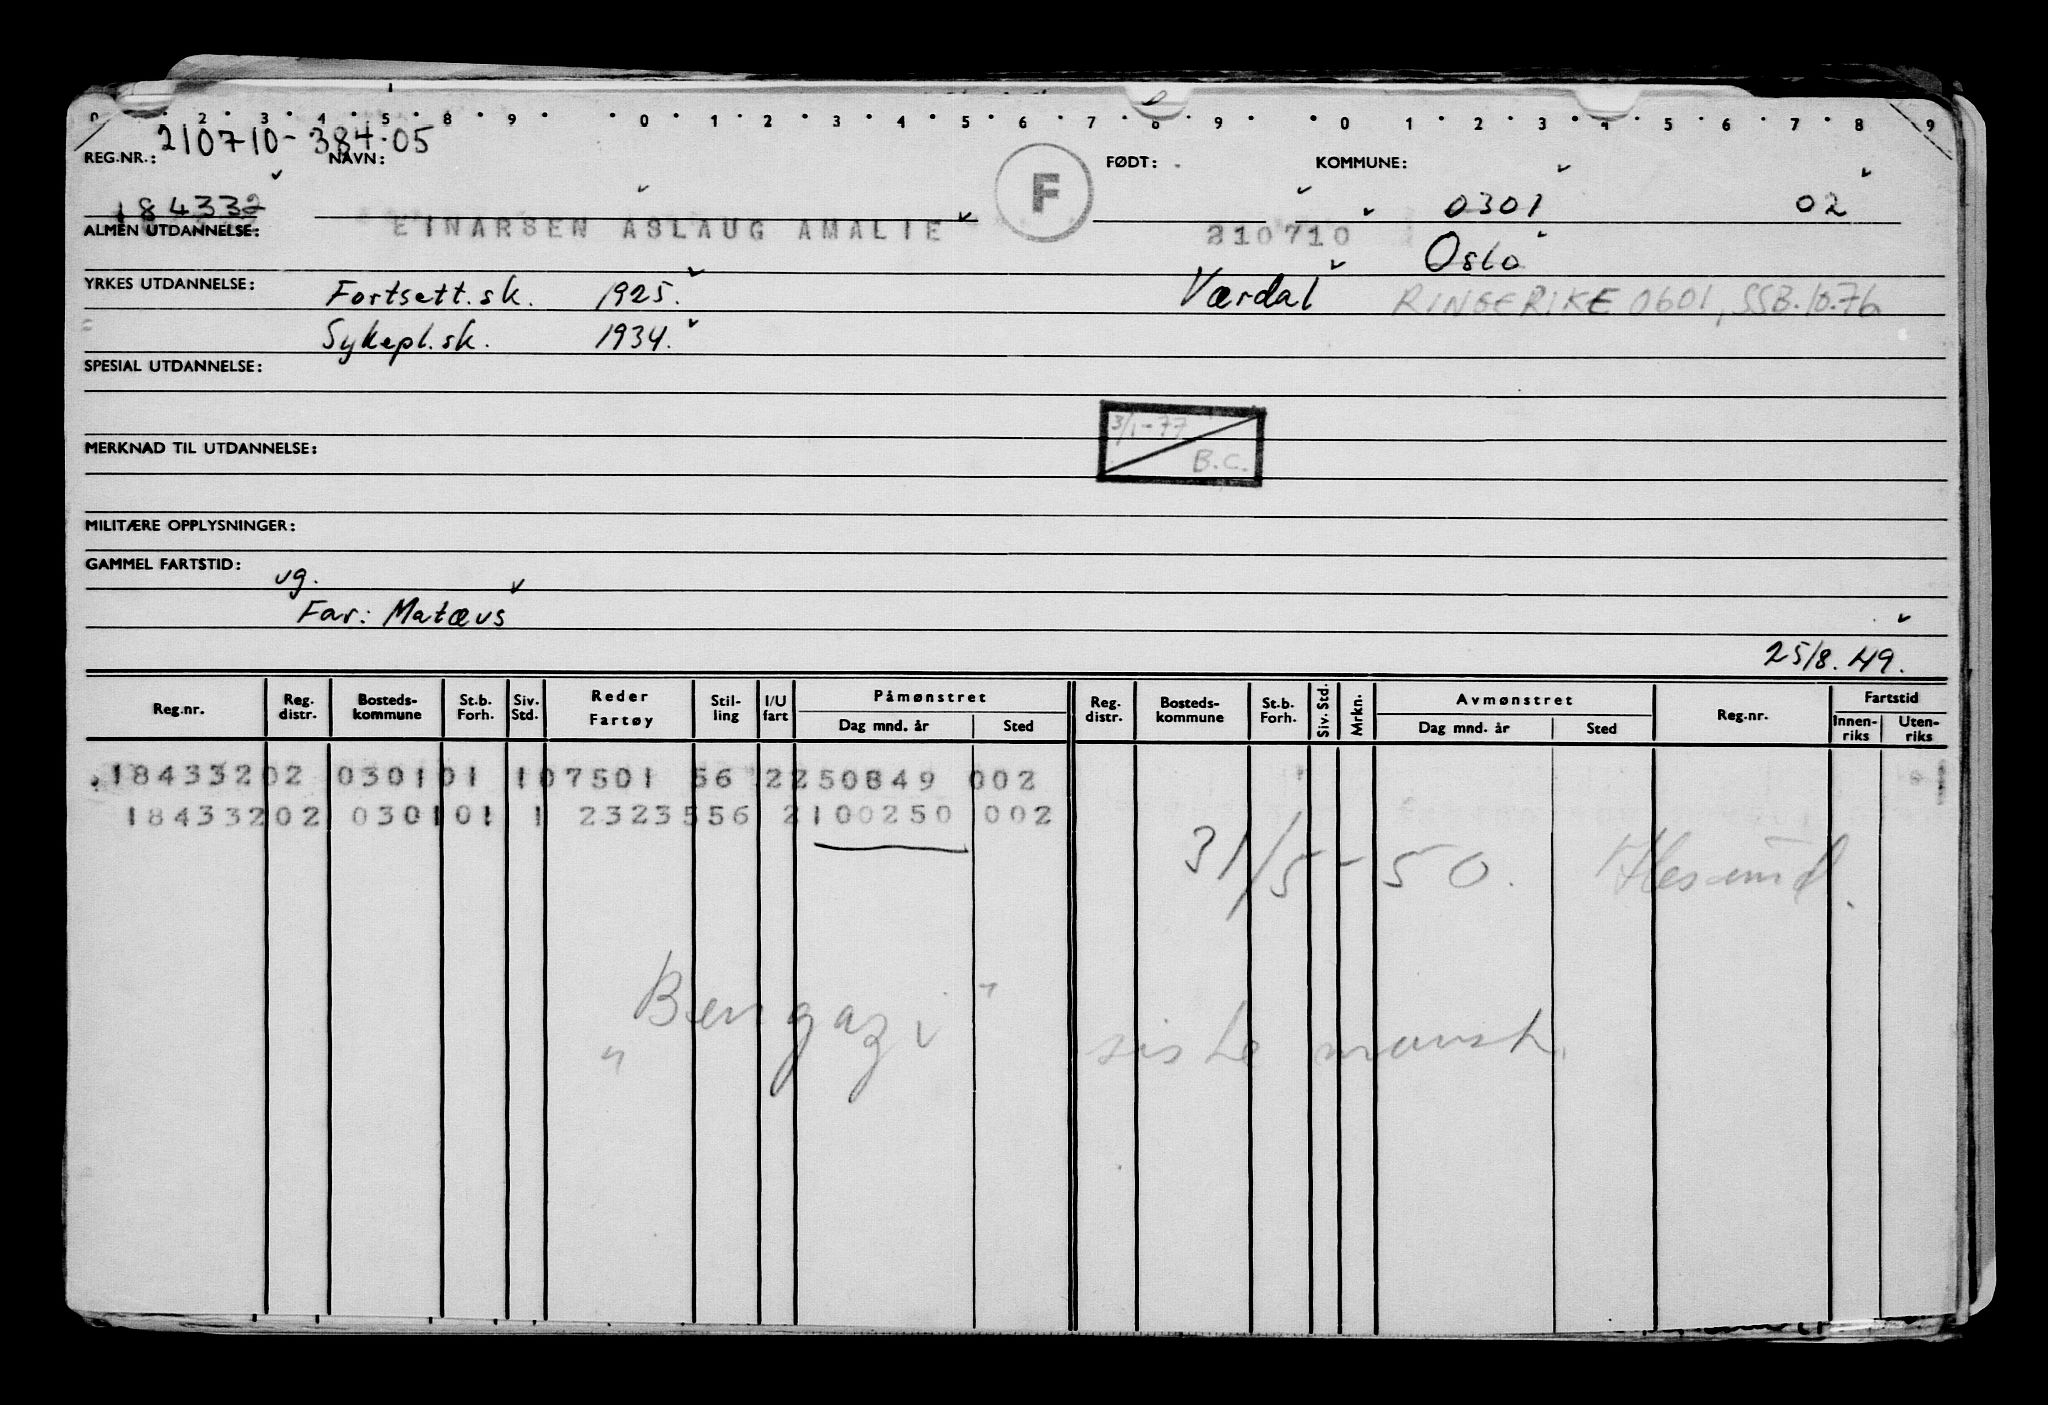 0 . 2 . 3 . 4 . 5 . 8 . 9 . . 0 . 1 . 2 . 3 . 4 . 5 . 6 . 7 . 8 . 9 . . 0 . 1 . 2 . 3 . 4 . 5 . 6 . 7 . 8 . 9
210710-384.05
REG.NR.: NAVN: F FØDT: KOMMUNE:
184332 0301 02
ALMEN UTDANNELSE: EINARSEN ASLAUG AMALIE 210710 Oslo
YRKES UTDANNELSE: Fortsett.sk. 1925. Værdal RINGERIKE 0601, SSB.10.76
Sykepl.sk. 1934.
SPESIAL UTDANNELSE:
3/1-77
MERKNAD TIL UTDANNELSE: B.C.
MILITÆRE OPPLYSNINGER:
GAMMEL FARTSTID: ug.
Far: Matæus
25/8. 49.
Reg.nr. Reg. distr. Bosteds- kommune St.b. Forh. Siv. Std. Reder Fartøy Stil- ling I/U fart Påmønstret Dag mnd. år Sted Reg. distr. Bosteds- kommune St.b. Forh. Siv. Std. Mrkn. Avmønstret Dag mnd. år Sted Reg.nr. Fartstid Innen- riks Uten- riks
18433202 030101 107501 56 2250849 002
18433202 030101 1 2323556 2100250 002
31/5-50.
"Bengazi" siste mønst.